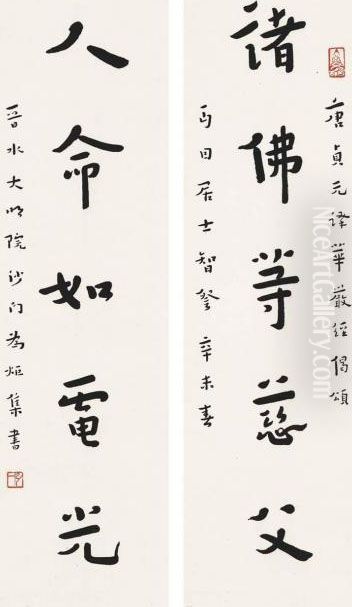 唐貞元譯華嚴經偈頌
諸佛等慈父
居士智 辛未春
人命如電光
晉水大明院沙門為炬集書